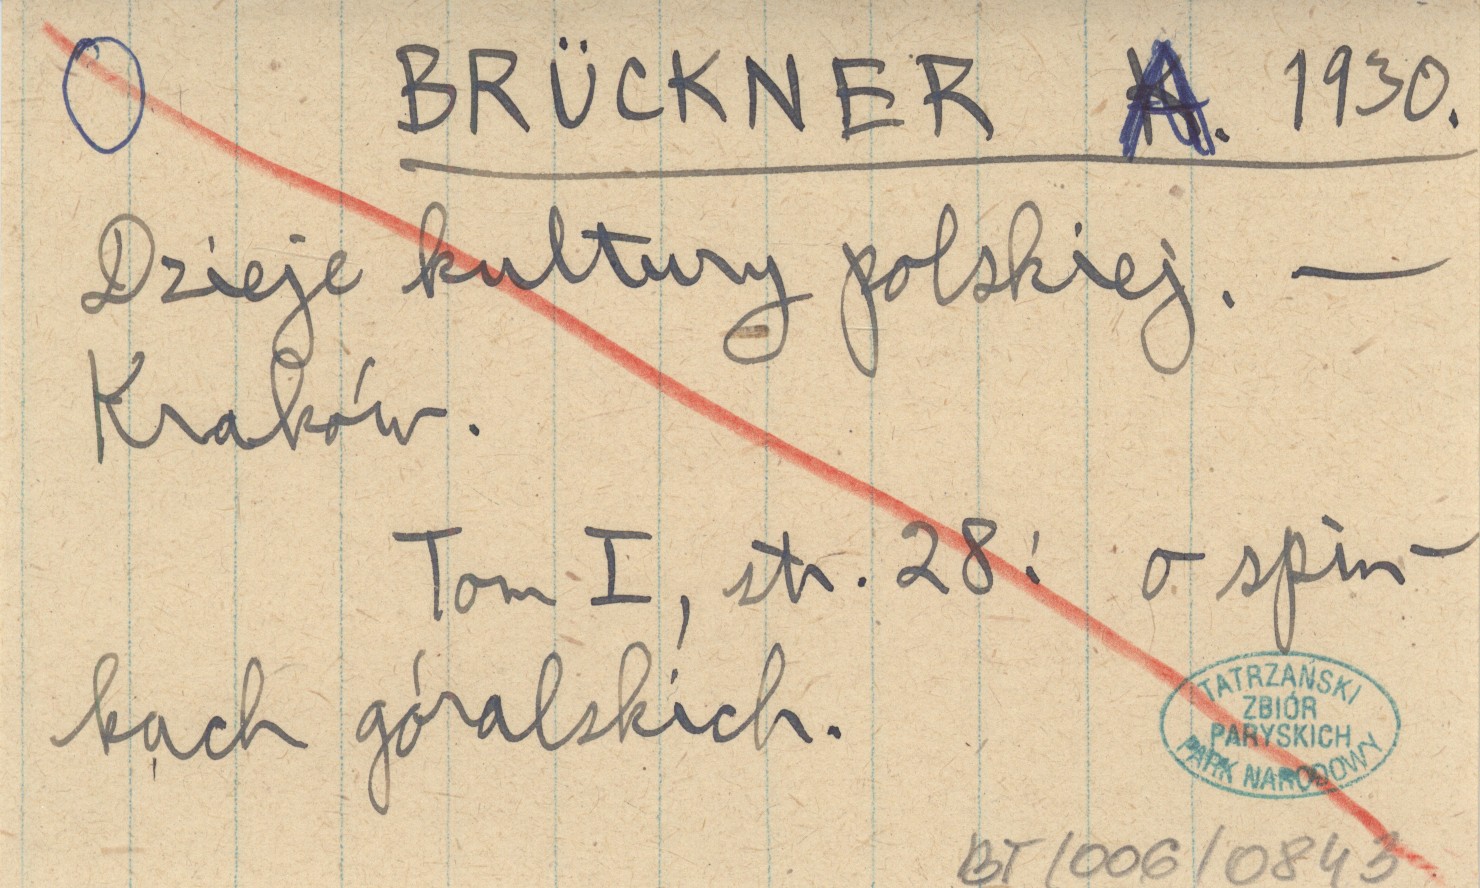 BRÜCKNER A. 1930.
Dzieje kultury polskiej. —
Kraków.
Tom I, str. 28: o spin-
kach góralskich.
TATRZAŃSKI
ZBIÓR
PARYSKICH
PARK NARODOWY
BT/006/0843